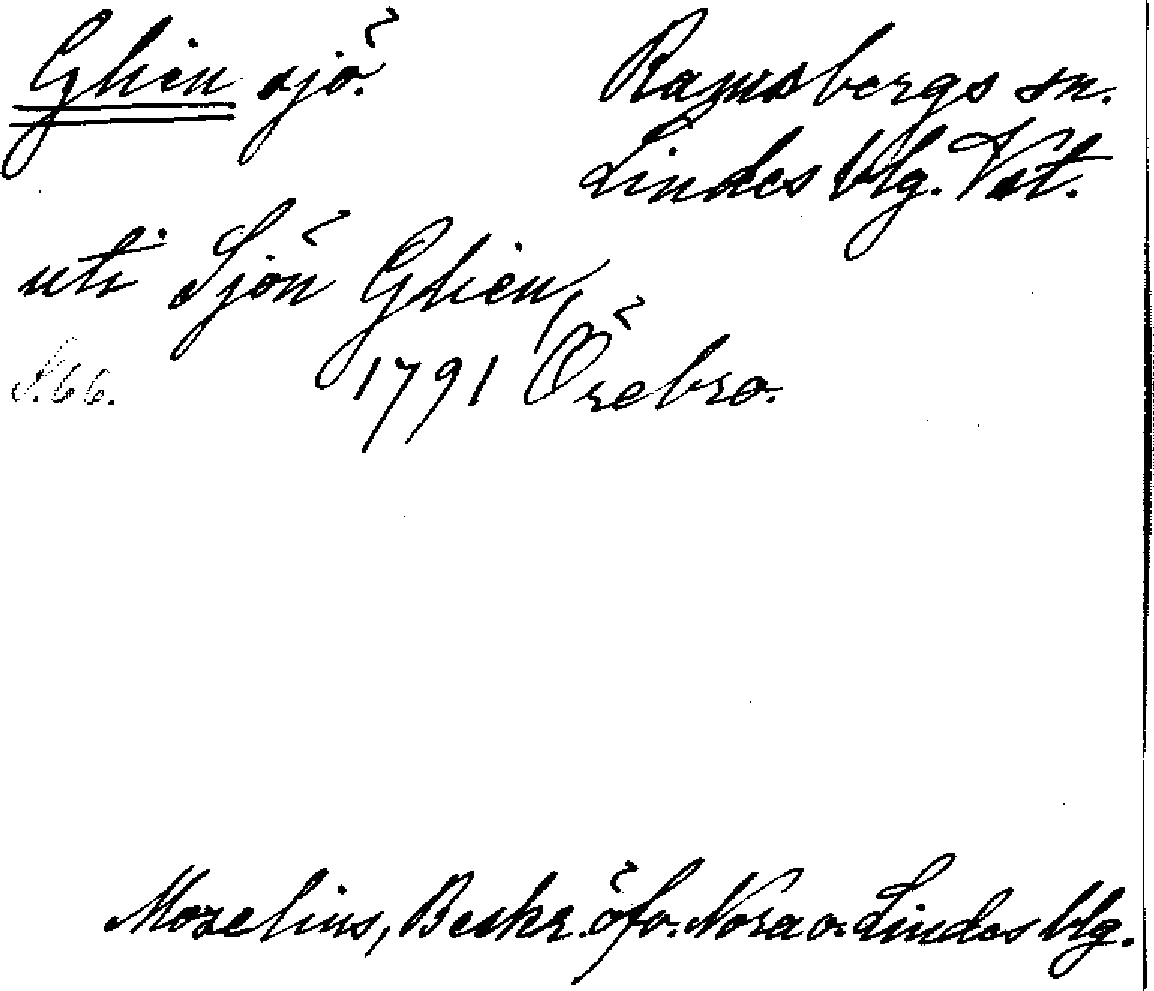 Ghien sjö. Ramsbergs sn.
Lindes blg. Vst.
uti Sjön Ghien,
S. 66. 1791 Örebro.
Mozelius, Beskr. öfv. Nora o. Lindes blg.